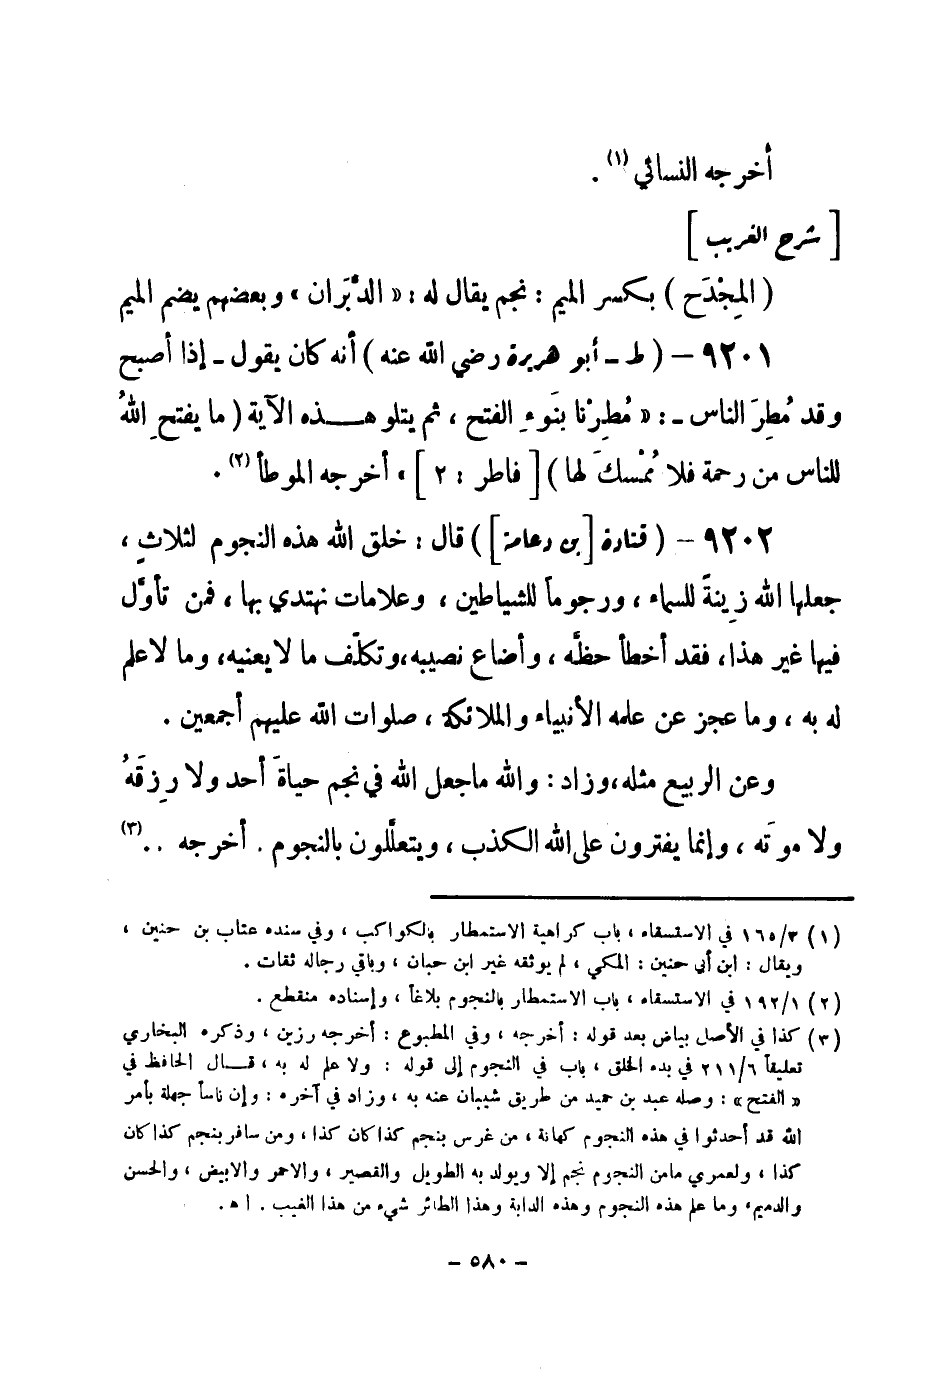 أخرجه النسائي (١) .
[ شرح الغريب ]
( المِجْدَح ) بكسر الميم : نجم يقال له : « الدَّبَران » وبعضهم يضم الميم
٩٢٠١ – ( ط ـ أبو هريرة رضي الله عنه ) أنه كان يقول ـ إذا أصبح
وقد مُطِرَ الناس ـ : « مُطِرْنا بنَوءِ الفتح ، ثم يتلو هـذه الآية ( ما يفتحِ اللهُ
للناس من رحمة فلا مُمْسكَ لها ) [ فاطر : ٢ ] » أخرجه الموطأ (٢) .
٩٢٠٢ – ( قتادة [ بن دعامة ] ) قال : خلق الله هذه النجوم لثلاثٍ ،
جعلها الله زِينةً للسماء ، ورجوماً للشياطين ، وعلامات نهتدي بها ، فمن تأوَّل
فيها غير هذا، فقد أخطأ حظَّه ، وأضاع نصيبه،وتكلّف ما لايعنيه، وما لاعلم
له به ، وما عجز عن علمه الأنبياء والملائكة ، صلوات الله عليهم أجمعين .
وعن الربيع مثله،وزاد : والله ماجعل الله في نجم حياةَ أحد ولا رِزقَهُ
ولا موتَه ، وإنما يفترون على الله الكذب ، ويتعلَّلون بالنجوم . أخرجه . . (٣)
(١) ١٦٥/٣ في الاستسقاء ، باب كراهية الاستمطار بالكواكب ، وفي سنده عتاب بن حنين ،
ويقال : ابن أبي حنين : المكي ، لم يوثقه غير ابن حبان ، وباقي رجاله ثقات .
(٢) ١٩٢/١ في الاستسقاء ، باب الاستمطار بالنجوم بلاغاً ، وإسناده منقطع .
(٣) كذا في الأصل بياض بعد قوله : أخرجه ، وفي المطبوع : أخرجه رزين ، وذكره البخاري
تعليقاً ٢١١/٦ في بدء الخلق ، باب في النجوم إلى قوله : ولا علم له به ، قـال الحافظ في
« الفتح» : وصله عبد بن حميد من طريق شيبان عنه به ، وزاد في آخره : وإن ناساً جهلة بأمر
الله قد أحدثوا في هذه النجوم كهانة ، من غرس بنجم كذا كان كذا ، ومن سافر بنجم كذا كان
كذا ، ولعمري مامن النجوم نجم إلا ويولد به الطويل والقصير ، والاحمر والابيض ، والحسن
والدميم، وما علم هذه النجوم وهذه الدابة وهذا الطائر شيء من هذا الغيب . ا ه .
– ٥٨٠ –